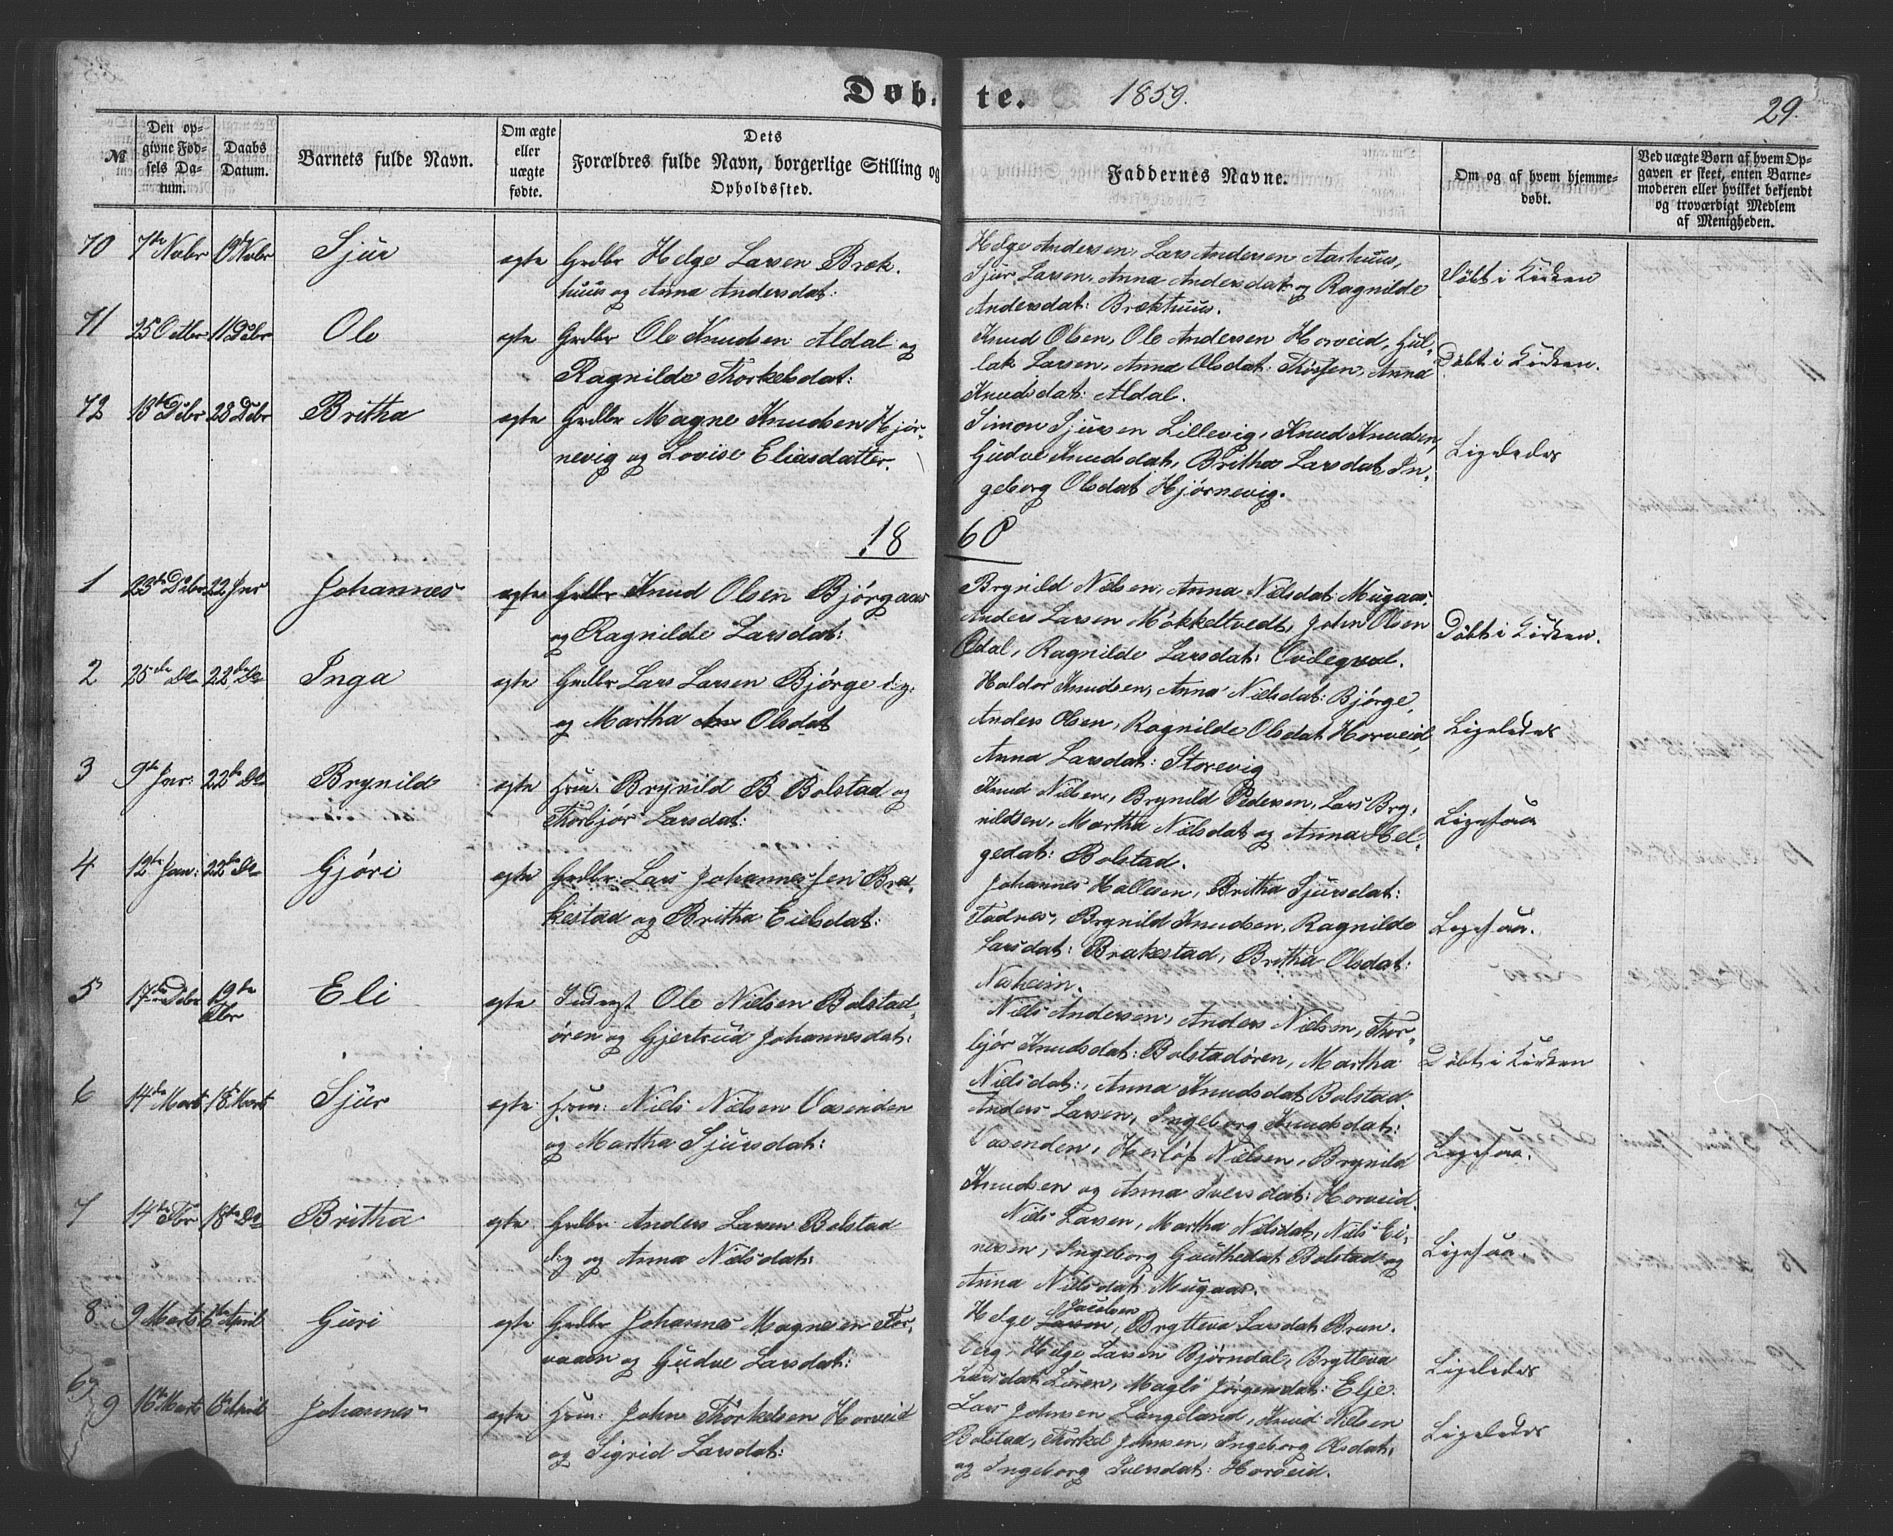 Døb- te. 1859. 29.
№
Den opgivne Fødsels Datum.
Daabs Datum.
Barnets fulde Navn.
Om ægte eller uægte fødte.
Dets
Forældres fulde Navn, borgerlige Stilling og
Opholdssted.
Faddernes Navne.
Om og af hvem hjemmedøbt.
Ved uægte Børn af hvem Opgaven er skeet, enten Barnemoderen eller hvilket bekjendt og troværdigt Medlem af Menigheden.
70 7de Novbr 19de Novbr Sjur ægte Grdbr Helge Larsen Bræk-
huus og Anna Andersdat:
Helge Andersen, Lars Andersen Aarhuus,
Sjur Larsen, Anna Andersdat: og Ragnilde
Andersdat: Brækhuus.
Døbt i Kirken
71 25 Octbr 11 Debr Ole ægte Grdbr Ole Knudsen Aldal og
Ragnilde Thorkelsdat:
Knud Olsen, Ole Andersen Horveid, Gul-
lak Larsen, Anna Olsdat: Anna
Knudsdat: Aldal.
Døbt i Kirken.
72 13de Debr 28 Debr Britha ægte Grdbr Magne Knudsen Hjør-
nevig og Lovise Eliasdatter.
Simon Sjursen Lillevig, Knud Knudsen,
Gudve Knudsdat, Britha Larsdat, In-
geborg Olsdat Hjørnevig.
Ligeledes
18 60
1 23de Debr 22 Jnr Johannes ægte Grdbr Knud Olsen Bjørgaas
og Ragnilde Larsdat:
Brynild Nielsen, Anna Nielsdat: Mugaas,
Anders Larsen Møkkeltvedt, John Olsen
Odal, Ragnilde Larsdat:
Døbt i Kirken.
2 25de Do 22de Do Inga ægte Grdbr Lars Larsen Bjørge
og Martha Olsdat
Haldor Knudsen, Anna Nielsdat: Bjørge,
Anders Olsen, Ragnilde Olsdat Horveid,
Anna Larsdat: Storevig
Ligeledes
3 9de Jnr: 22de Do Brynild ægte Huu: Brynild B Bolstad og
Thorbjør Larsdat:
Knud Nielsen, Brynild Pedersen, Lars Bry-
nildsen, Martha Nielsdat og Anna Hel-
gedat: Bolstad.
Ligesaa
4 12te Jan: 22de Do Gjøri ægte Grdbr: Lars Johannessen Bra-
kestad og Britha Eielsdat:
Johannes Hallesen, Britha Sjursdat:
Fadnes, Brynild Knudsen, Ragnilde
Larsdat: Brakestad, Britha Olsdat:
Næsheim.
Ligesaa.
5 17de Debr 19de Fbr Eli ægte Inderst Ole Nielsen Bolstad-
øren og Gjertrud Johannesdat:
Niels Andersen, Anders Nielsen, Thor-
bjør Knudsdat: Bolstadøren, Martha
Nielsdat:, Anna Knudsdat Bolstad.
Døbt i Kirken
6 14de Marts 18 Marts Sjur ægte Huu: Niels Nielsen Vasenden
og Martha Sjursdat:
Anders Larsen, Ingeborg Knudsdat:
Vasenden, Nielsen, Brynild
Knudsen og Anna Iversdat: Horveid.
Ligesaa.
7 14de Fbr 18de Do Britha ægte Grdbr Anders Larsen Bolstad
og Anna Nielsdat:
Niels Larsen, Martha Nielsdat, Niels Ei-
nersen, Ingeborg Gauthedat Bolstad og
Anna Nielsdat Mugaas.
Ligesaa.
8 9 Marts 6te April Guri ægte Grdbr Johannes Magnesen For-
vaaen og Gudve Larsdat:
Helge Larsen Jacobsen, Brytteva Larsdat Brun-
berg, Helge Larsen Bjørndal, Brytteva
Larsdat Lüren, Maglö Jørgensdat: Elje
Ligeledes
67
9 16 Marts 6te April Johannes ægte Huu: John Thorkelsen Horveid
og Sigrid Larsdat:
Lars Johnsen Langeland, Knud Nielsen
Bolstad, Thorkel Johnsen, Ingeborg Olsdat
og Ingeborg Iversdat: Horveid.
Ligeledes